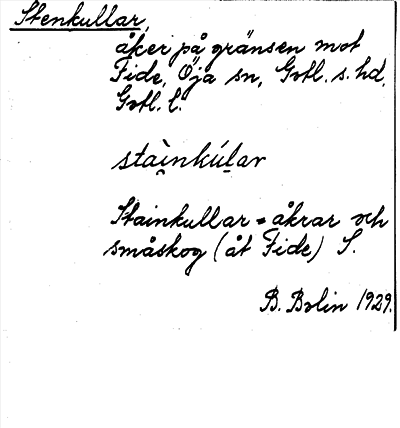 Stenkullar,
åker på gränsen mot
Fide, Öja sn, Gotl. s. hd,
Gotl. l.
stài̯nkúl̠ar
Stainkullar = åkrar och
småskog (åt Fide) S.
B. Bolin 1929.